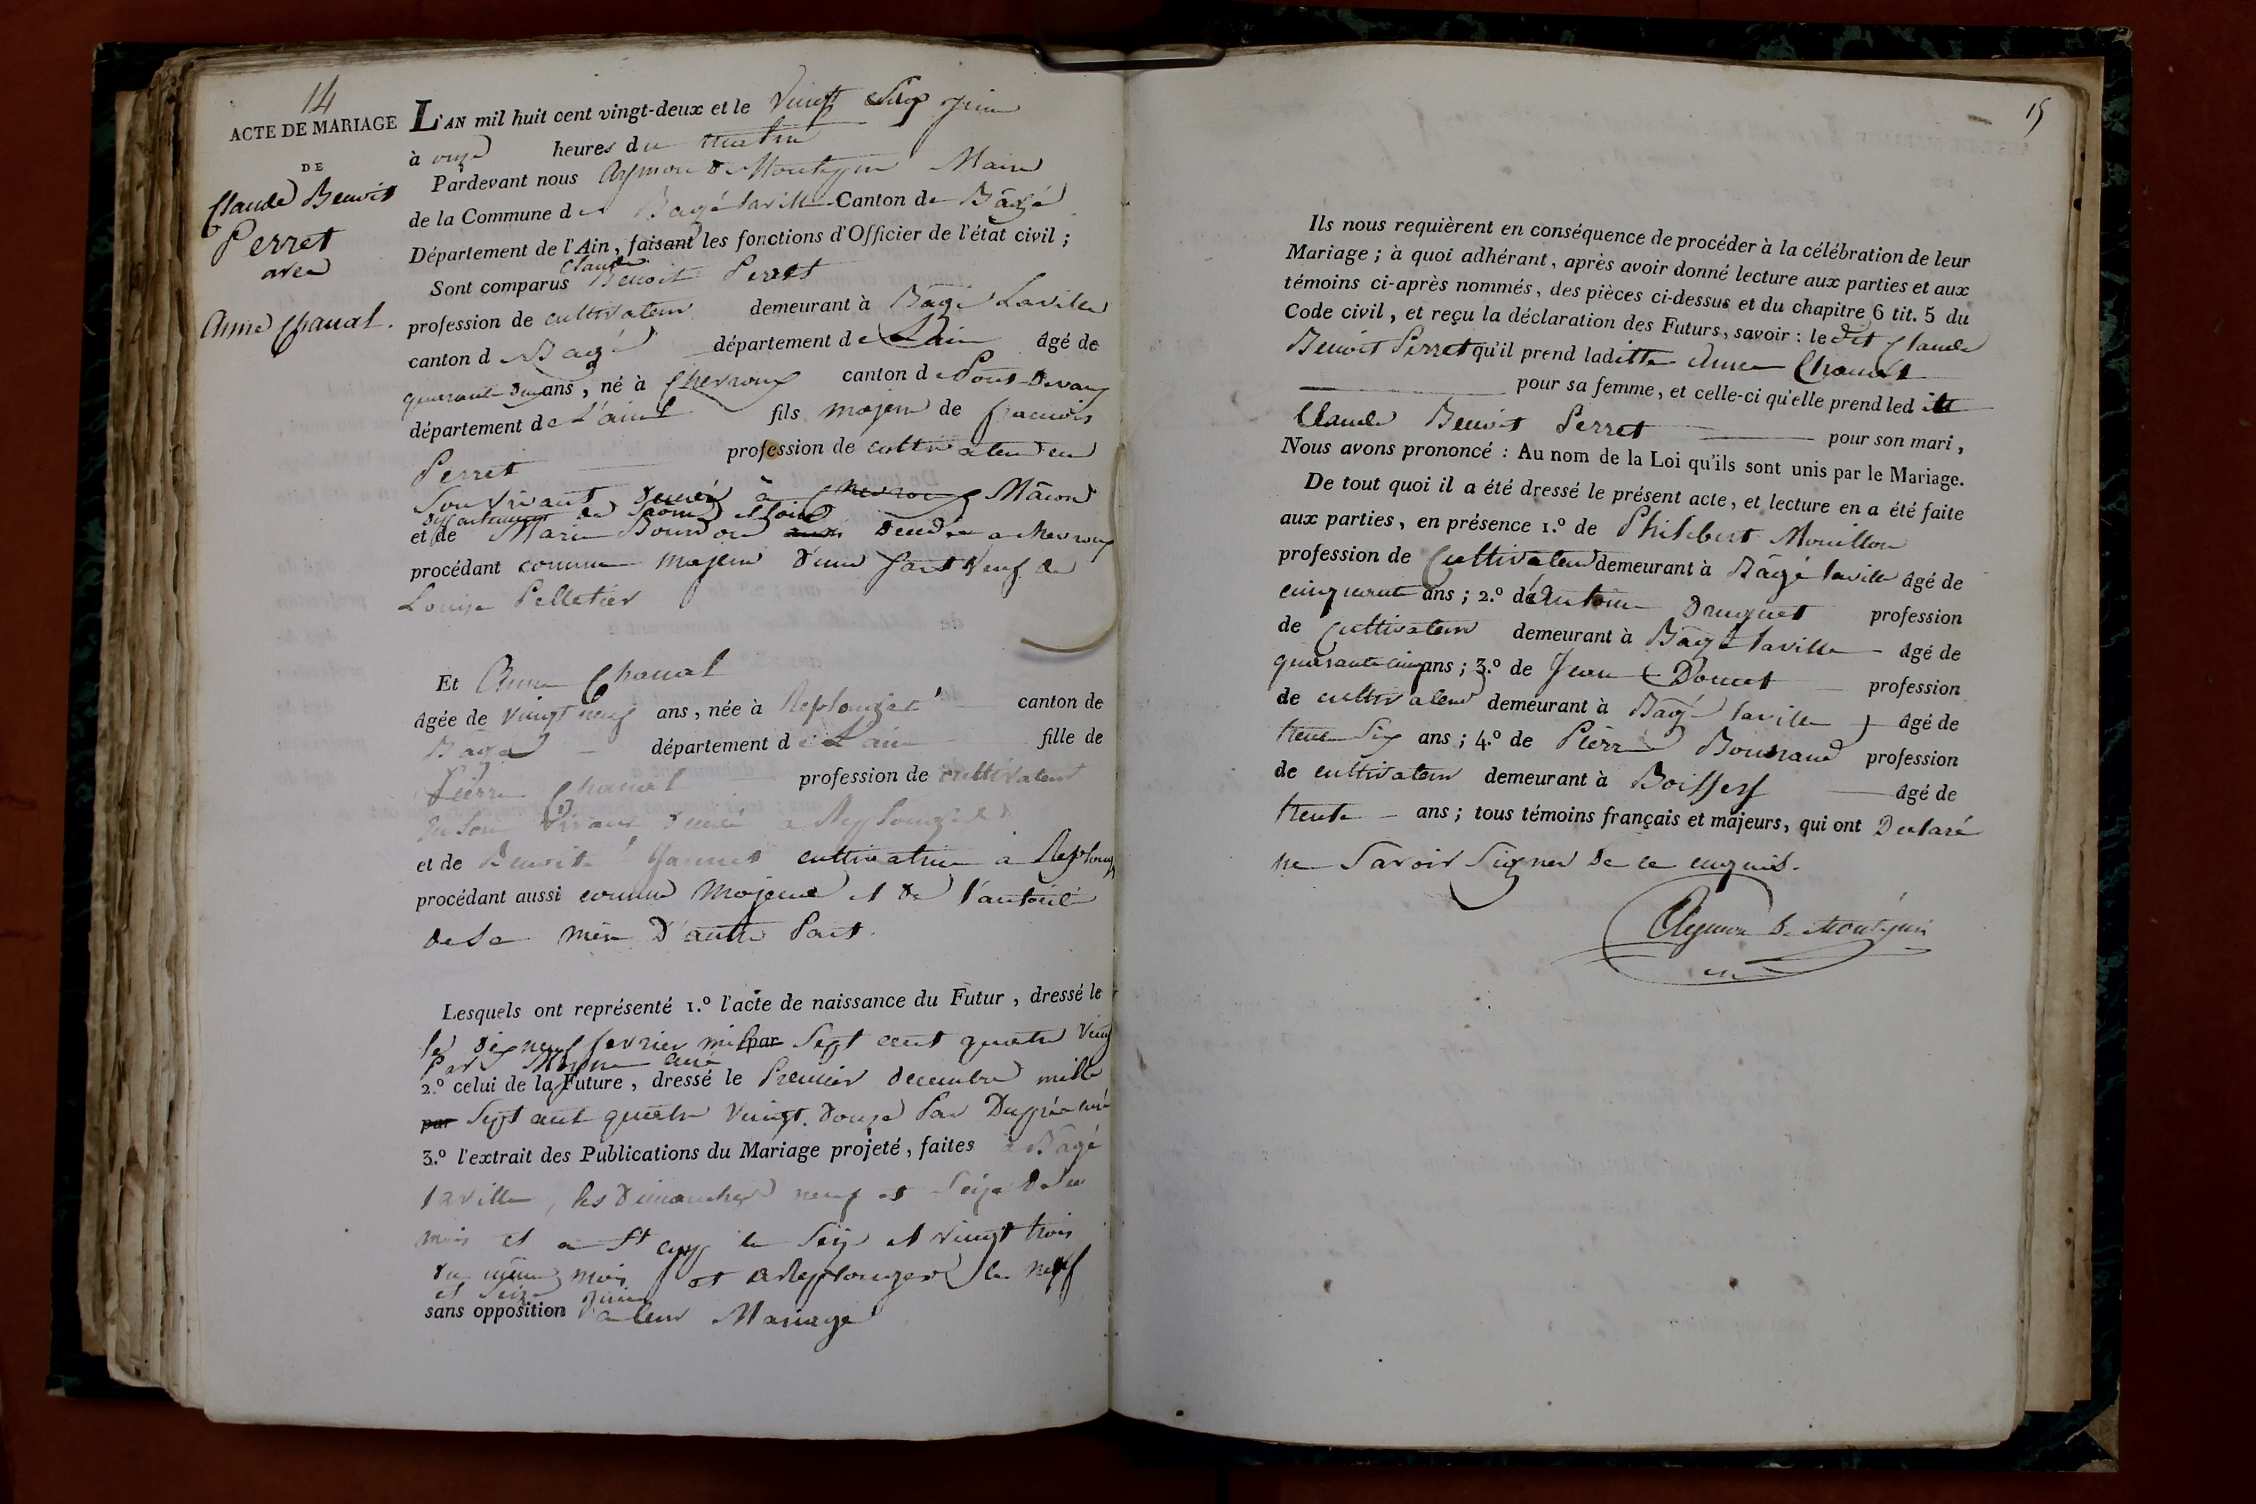 14
ACTE DE MARIAGE
DE
Claude Benoit
Perret
avec
Anne Chanal.
L'AN mil huit cent vingt-deux et le vingt juin
à onze heures du matin
Pardevant nous Aymon de Montepin Maire
de la Commune de Bagé laville Canton de Bâgé
Département de l'Ain, faisant les fonctions d'Officier de l'état civil ;
Claude
Sont comparus Benoit Perret
profession de cultivateur demeurant à Bâgé Laville
canton de Bagé département de L'ain âgé de
quarante deux ans, né à Chevroux canton de Pont-Devaux
département de L'ain fils majeur de francois
Perret profession de cultivateur en
Son vivant à Chevroux Mâcon
département de Saone et Loire
et de Marie Bourdon a chevroux
procédant comme majeur d'une part veuf de
Louise Pelletier
Et Anne Chanal
âgée de vingt neuf ans, née à Replonges canton de
Bagé département de L'ain fille de
Pierre Chanal profession de cultivateur
en son vivant a Replonges
et de Benoite cultivatrice a Replonges
procédant aussi comme majeure et de l'autorité
de Sa mère D'autre Part.
Lesquels ont représenté 1.º l'acte de naissance du Futur, dressé le
le dix neuf fevrier mil par Sept cent quatre vingt
Par curé
2.º celui de la Future, dressé le Premier decembre mille
par Sept cent quatre vingt douze Par Duprée curé
3.º l'extrait des Publications du Mariage projeté, faites à Bâgé
laville, les Dimanches neuf et Seize de ce
mois et a St cyr le Seize et vingt trois
du même mois et a Replonges le neuf
et Seize juin
sans opposition a leur Mariage
15
Ils nous requièrent en conséquence de procéder à la célébration de leur
Mariage ; à quoi adhérant, après avoir donné lecture aux parties et aux
témoins ci-après nommés, des pièces ci-dessus et du chapitre 6 tit. 5 du
Code civil, et reçu la déclaration des Futurs, savoir : le dit Claude
Benoit Perret qu'il prend laditte Anne Chanal
pour sa femme, et celle-ci qu'elle prend ledit
Claude Benoit Perret pour son mari,
Nous avons prononcé : Au nom de la Loi qu'ils sont unis par le Mariage.
De tout quoi il a été dressé le présent acte, et lecture en a été faite
aux parties, en présence 1.º de Philibert Mouillon
profession de Cultivateur demeurant à Bâgé laville âgé de
cinquante ans ; 2.º de Antoine Danguet profession
de Cultivateur demeurant à Bâgé laville âgé de
quarante cinq ans ; 3.º de Jean Doucet profession
de cultivateur demeurant à Bâgé laville âgé de
trente Six ans ; 4.º de Pierre profession
de cultivateur demeurant à Boissey âgé de
trente ans ; tous témoins français et majeurs, qui ont Declaré
ne Savoir Signer de ce enquis.
Aymon de Montepin